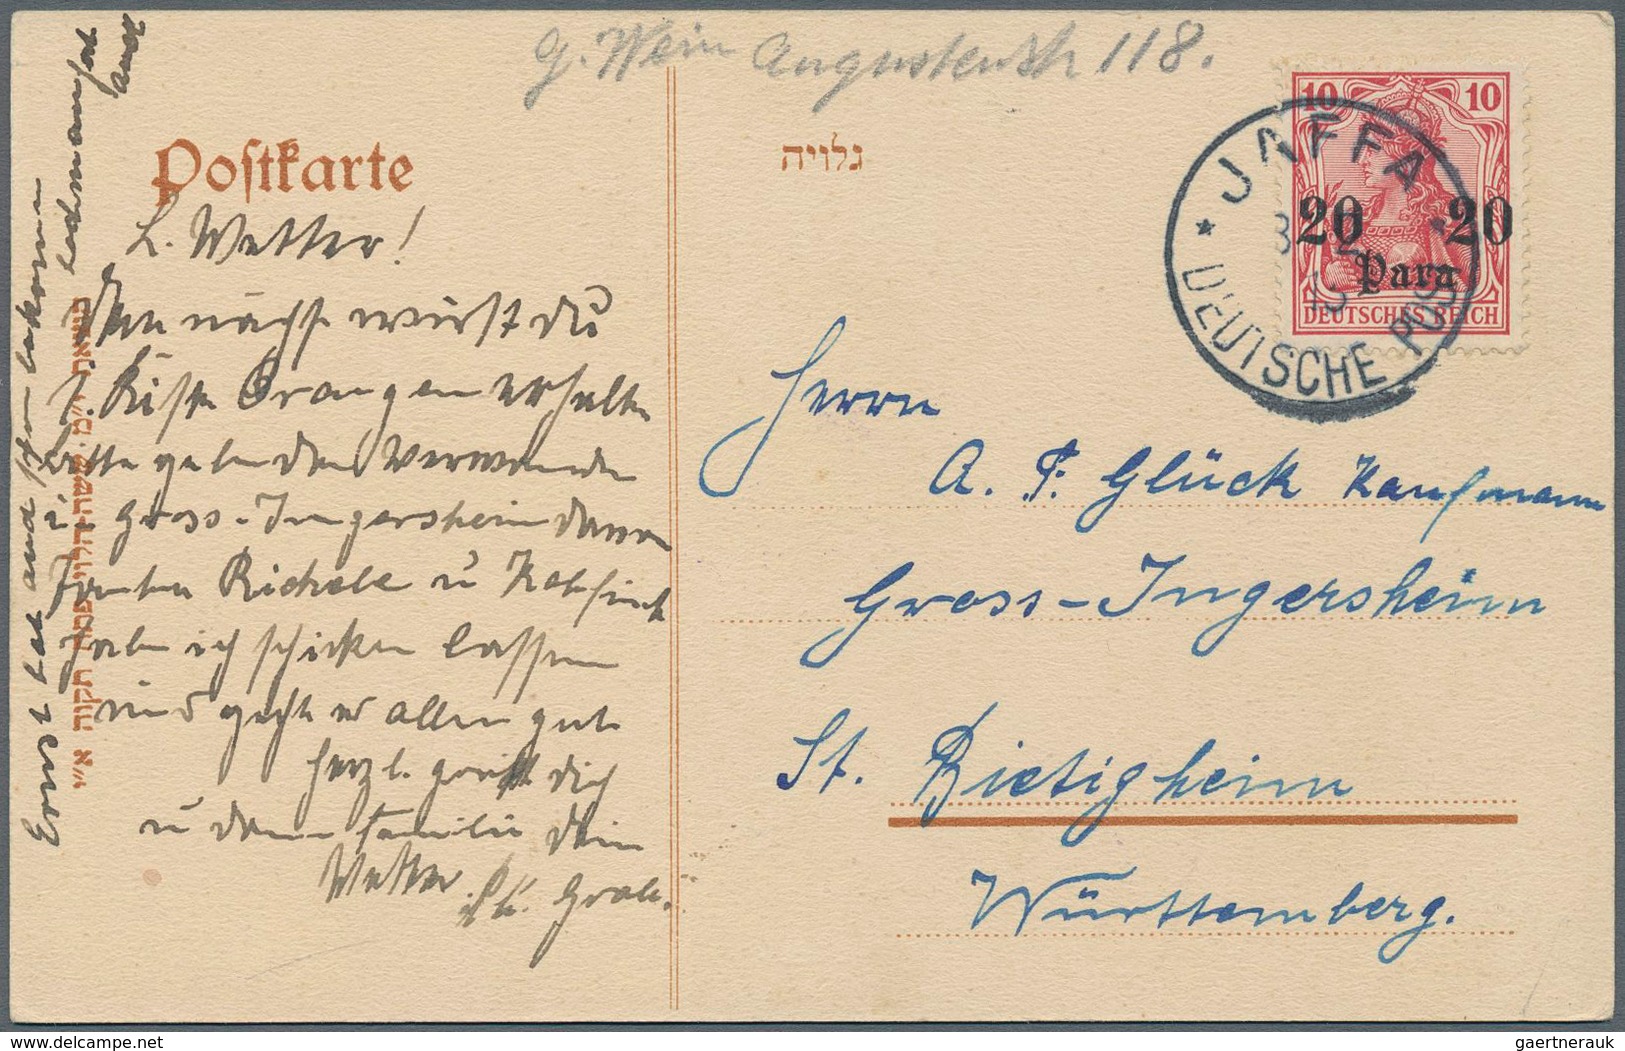 G. Wein Augustenstr 118.
Postkarte
גלויה
10 10
20 20
Para
DEUTSCHES REICH
* JAFFA *
DEUTSCHE POST
L. Vetter!
Demnächst wirst du
1. Kiste Orangen erhalten
Bitte gebe den Verwandten
i. Gross-Ingersheim davon
Richele u
habe ich schicken lassen
und geht es allen gut
herzl. grüßt dich
u deine Familie dein
Vetter
Ernst hat auch schon bekommen
Herrn
A. F. Glück Kaufmann
Gross-Ingersheim
St. Bietigheim
Württemberg.
gaertnerauk